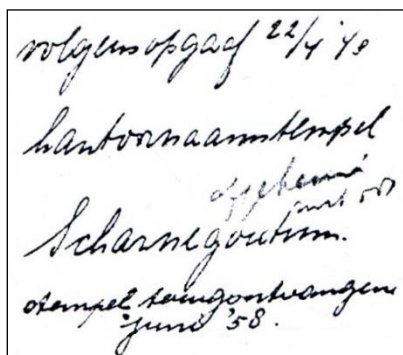 volgens opgaaf 22/4 '40
kantoornaamstempel
juni 58
Scharnegoutum.
stempel terugontvangen
juni '58.